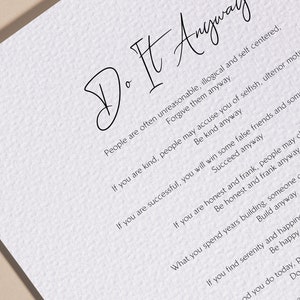 Do It Anyway
People are often unreasonable, illogical and self centered.
Forgive them anyway
If you are kind, people may accuse you of selfish, ulterior
Be kind anyway
If you are successful, you will win some false friends and some
Succeed anyway
If you are honest and frank, people may
Be honest and frank anyway
What you spend years building, someone
Build anyway
If you find serenity and
Be happy
you do today,